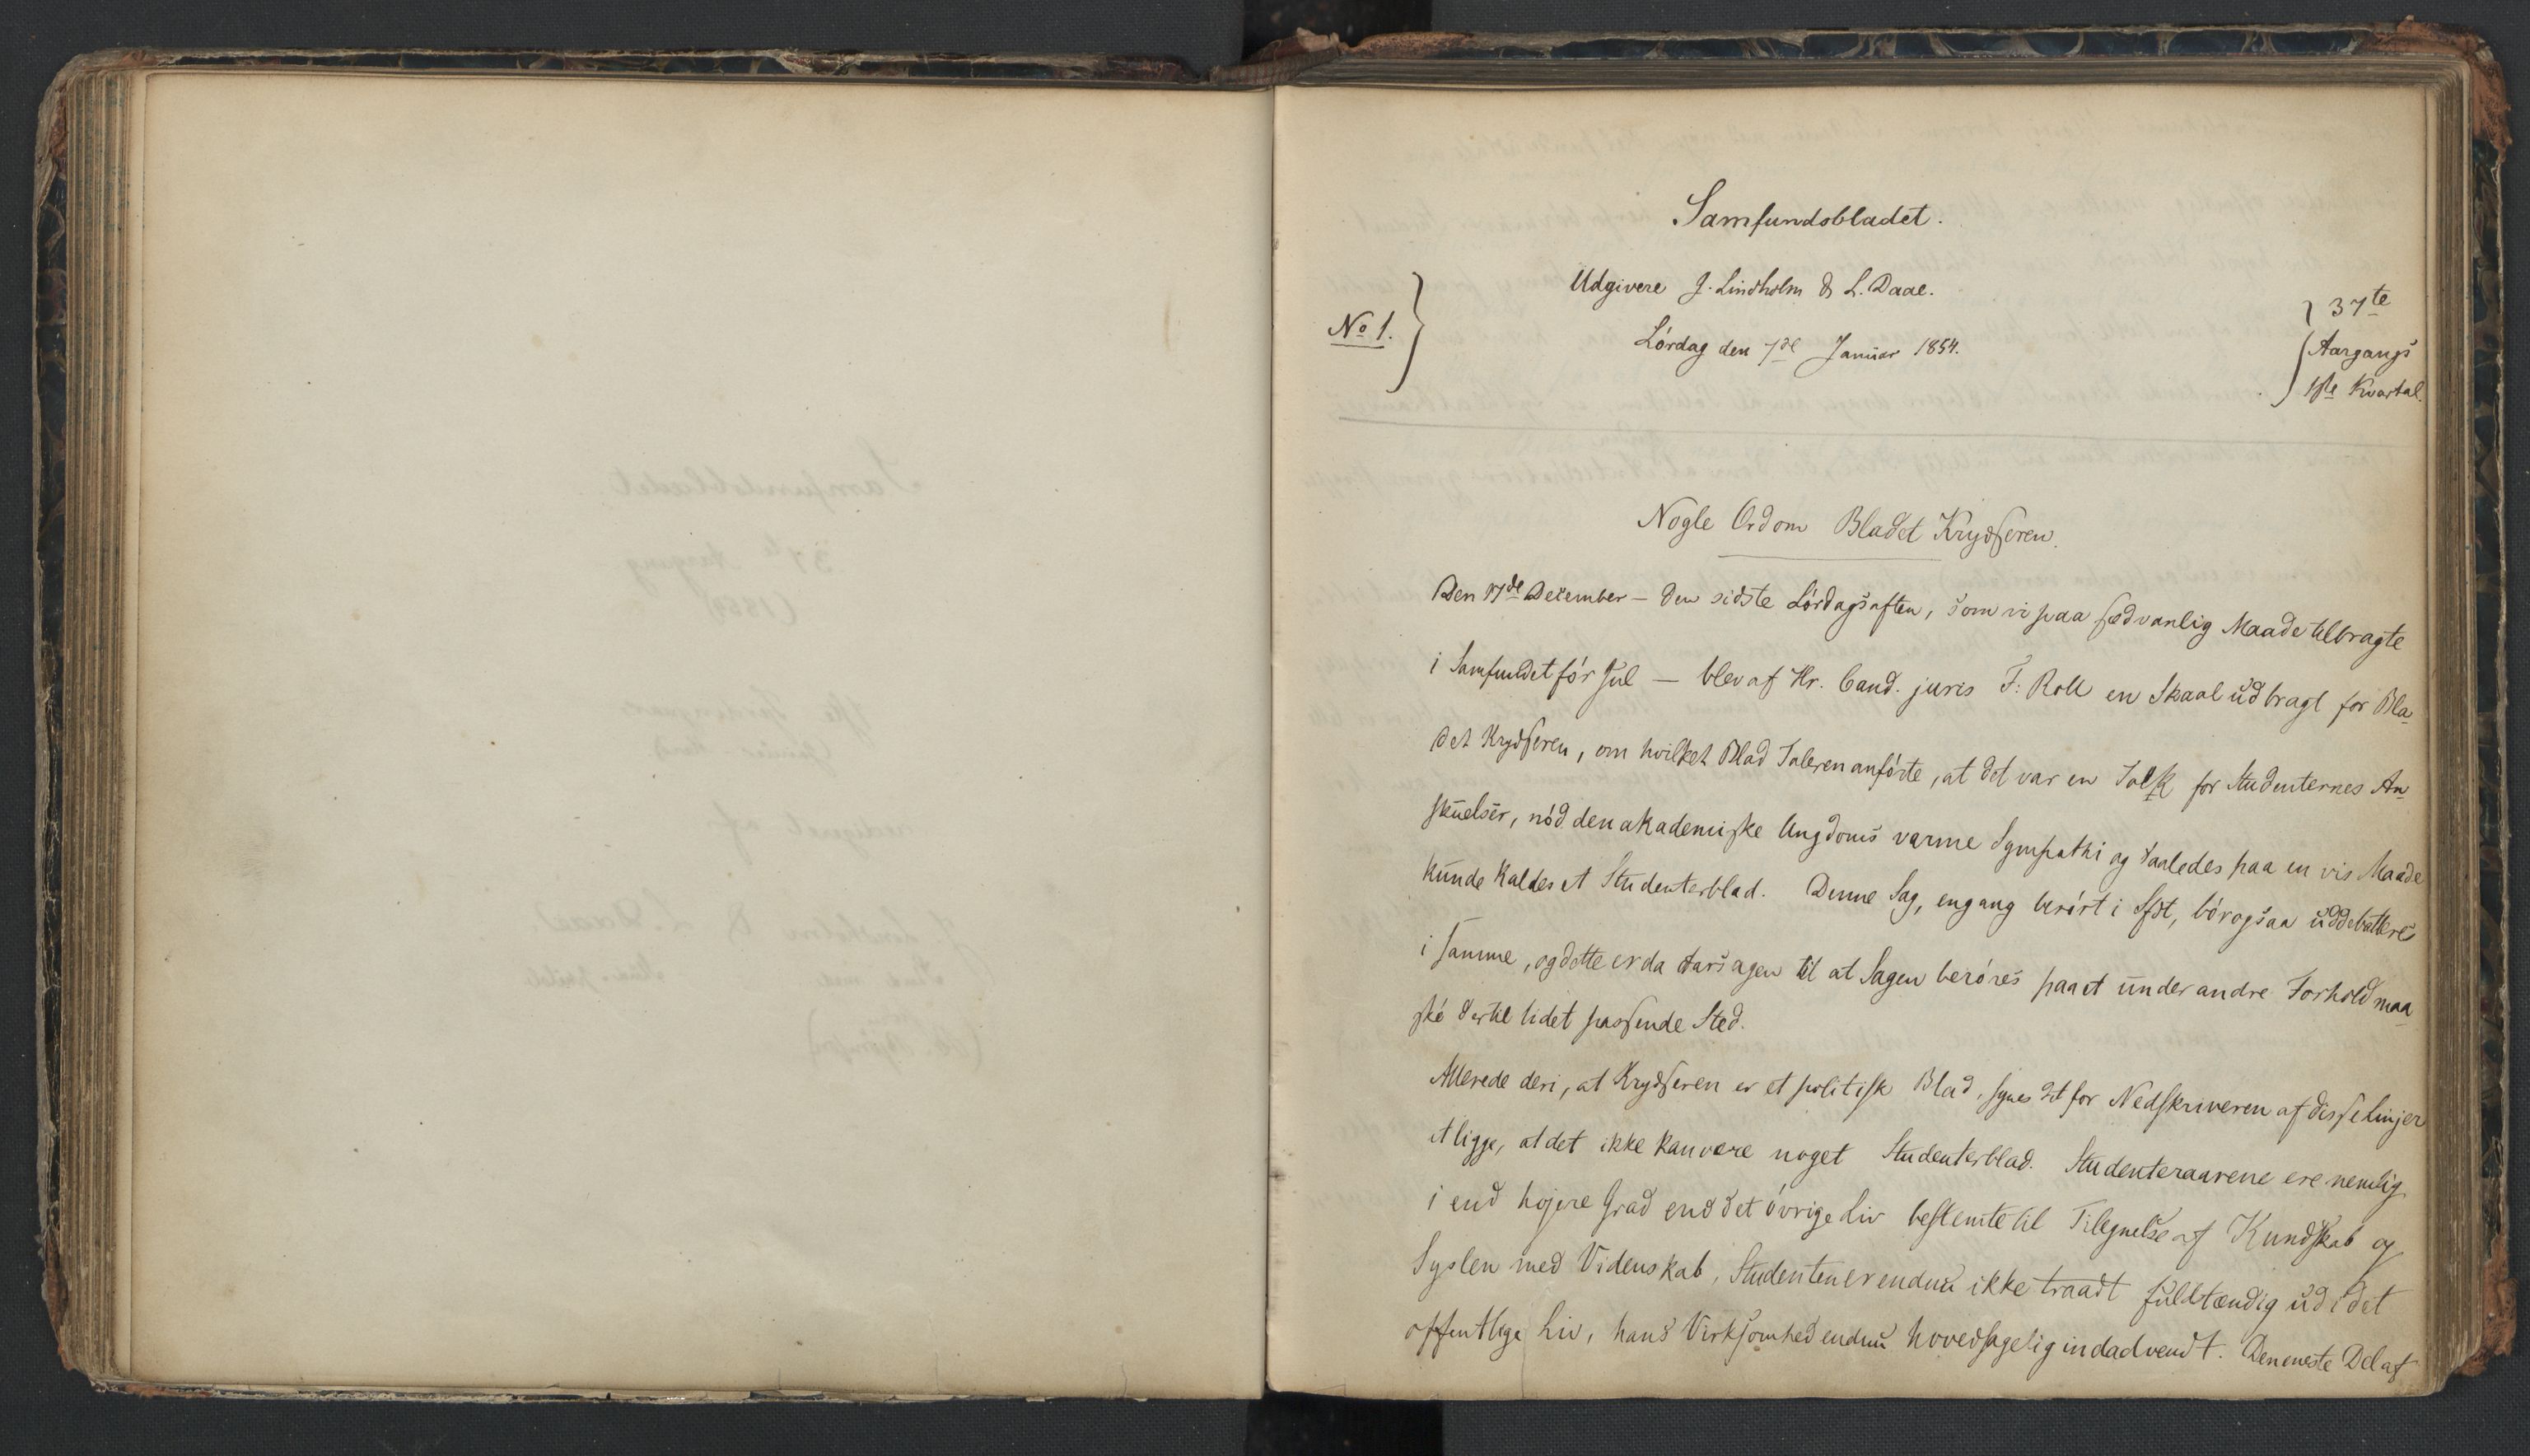 Samfundsbladet.
Udgivere J. Lindholm & L. Daae.
No 1.
Lördag den 7de Januar 1854.
37te
Aargangs
1ste Kvartal.
Nogle Ord om Bladet Krydseren.
Den 17de December – den sidste Lördagsaften, som vi paa sædvanlig Maade tilbragte
i Samfundet för Jul – blev af Hr. Cand. juris F. Roll en Skaal udbragt for Bla-
det Krydseren, om hvilket Blad Taleren anförte, at det var en Tolk for Studenternes An-
skuelser, nöd den akademiske Ungdoms varme Sympathi og saaledes paa en vis Maade
kunde kaldes et Studenterblad. Denne Sag, engang berört i Sfdt, bör ogsaa uddebatteres
i samme, og dette er da Aarsagen til at Sagen beröres paa et under andre Forhold maa-
ské dertil lidet passende Sted.
Allerede deri, at Krydseren er et politisk Blad, synes det for Nedskriveren af disse Linjer
at ligge, at det ikke kan være noget Studenterblad. Studenteraarene ere nemlig
i end höjere Grad end det övrige Liv bestemte til Tilegnelse af Kundskab og
Syslen med Videnskab, Studenten er endnu ikke traadt fuldstændig ud i det
offentlige Liv, hans Virksomhed endnu hovedsagelig indadvendt. Den eneste Del af